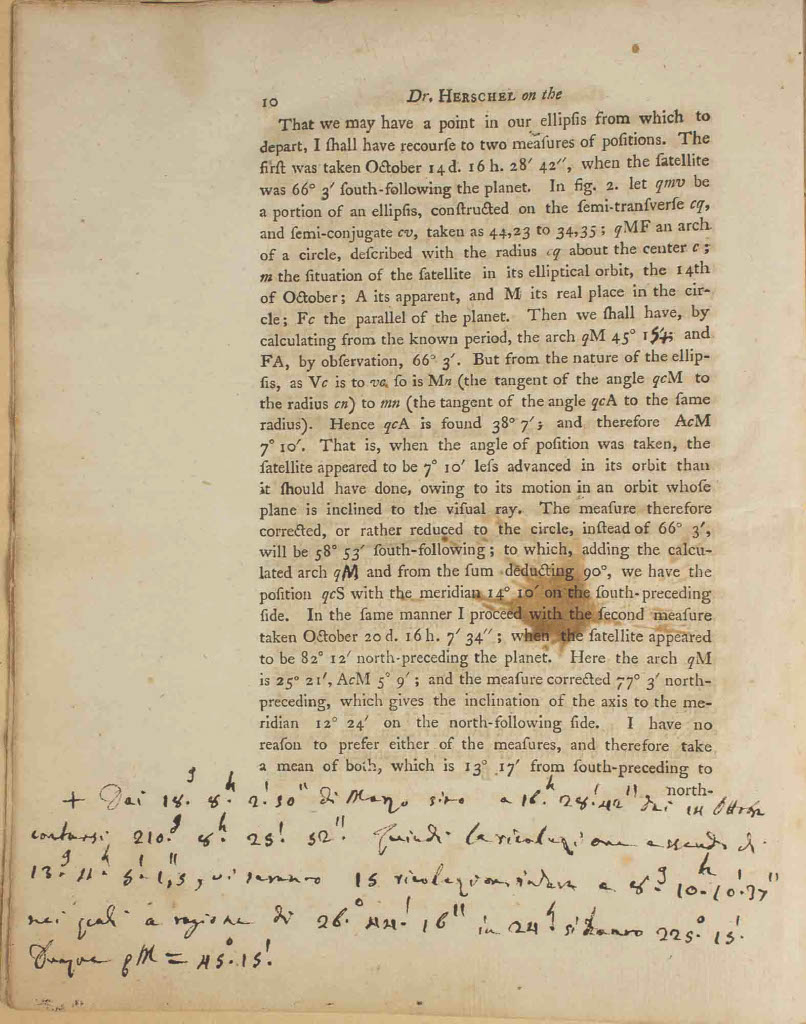 10
Dr. HERSCHEL on the
That we may have a point in our ellipſis from which to
depart, I ſhall have recourſe to two meaſures of poſitions. The
firſt was taken October 14 d. 16 h. 28′ 42″, when the ſatellite
was 66° 3′ ſouth-following the planet. In fig. 2. let qmv be
a portion of an ellipſis, conſtructed on the ſemi-tranſverſe cq,
and ſemi-conjugate cv, taken as 44,23 to 34,35; qMF an arch
of a circle, deſcribed with the radius cq about the center c;
m the ſituation of the ſatellite in its elliptical orbit, the 14th
of October; A its apparent, and M its real place in the cir-
cle; Fc the parallel of the planet. Then we ſhall have, by
calculating from the known period, the arch qM 45° and
FA, by obſervation, 66° 3′. But from the nature of the ellip-
ſis, as Vc is to vc, ſo is Mn (the tangent of the angle qcM to
the radius cn) to mn (the tangent of the angle qcA to the ſame
radius). Hence qcA is found 38° 7′; and therefore AcM
7° 10′. That is, when the angle of poſition was taken, the
ſatellite appeared to be 7° 10′ leſs advanced in its orbit than
it ſhould have done, owing to its motion in an orbit whoſe
plane is inclined to the viſual ray. The meaſure therefore
corrected, or rather reduced to the circle, inſtead of 66° 3′,
will be 58° 53′ ſouth-following; to which, adding the calcu-
lated arch qM and from the ſum deducting 90°, we have the
poſition qcS with the meridian 14° 10′ on the ſouth-preceding
ſide. In the ſame manner I proceed with the ſecond meaſure
taken October 20 d. 16 h. 7′ 34″; when the ſatellite appeared
to be 82° 12′ north-preceding the planet. Here the arch qM
is 25° 21′, AcM 5° 9′; and the meaſure corrected 77° 3′ north-
preceding, which gives the inclination of the axis to the me-
ridian 12° 24′ on the north-following ſide. I have no
reaſon to prefer either of the meaſures, and therefore take
a mean of both, which is 13° 17′ from ſouth-preceding to
north-
+ Dai 18.g 8.h 2.′ 10″ di Marzo sino a 16.h 28.′ 42″ dei 14 Ottobre
210.g 8.h 25.′ 52.″ Quindi la rivoluzione essendo di
13.g 11.h 5.′ 1,5″, vi saranno 15 rivoluzioni 8.g 10.h 10.′ 37″
nei quali a ragione di 26.° 44.′ 16″ in 24.h si hanno 225.° 15.′
Dunque qM = 45.° 15.′